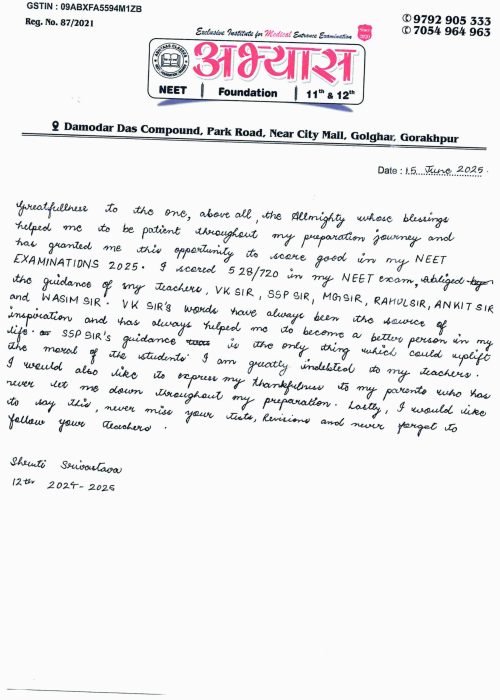 GSTIN : 09ABXFA5594M1ZB
Reg. No. 87/2021
✆ 9792 905 333
✆ 7054 964 963
Exclusive Institute for Medical Entrance Examination
अभ्यास
NEET | Foundation | 11th & 12th
Damodar Das Compound, Park Road, Near City Mall, Golghar, Gorakhpur
Date : 15 June 2025.
Greatfullness to the one, above all, the Allmighty whose blessings
helped me to be patient throughout my preparation journey and
has granted me this opportunity to score good in my NEET
EXAMINATIONS 2025. I scored 528/720 in my NEET exam, obliged
the guidance of my teachers, VK SIR, SSP SIR, MG SIR, RAHUL SIR, ANKIT SIR
and WASIM SIR. VK SIR'S words have always been the source of
inspiration and has always helped me to become a better person in my
life. SSP SIR'S guidance is the only thing which could uplift
the moral of the students. I am greatly indebted to my teachers.
I would also like to express my thankfulness to my parents who has
never let me down throughout my preparation. Lastly, I would like
to say this, never miss your tests, Revisions and never forget to
follow your teachers.
Shruti Srivastava
12th 2024-2025